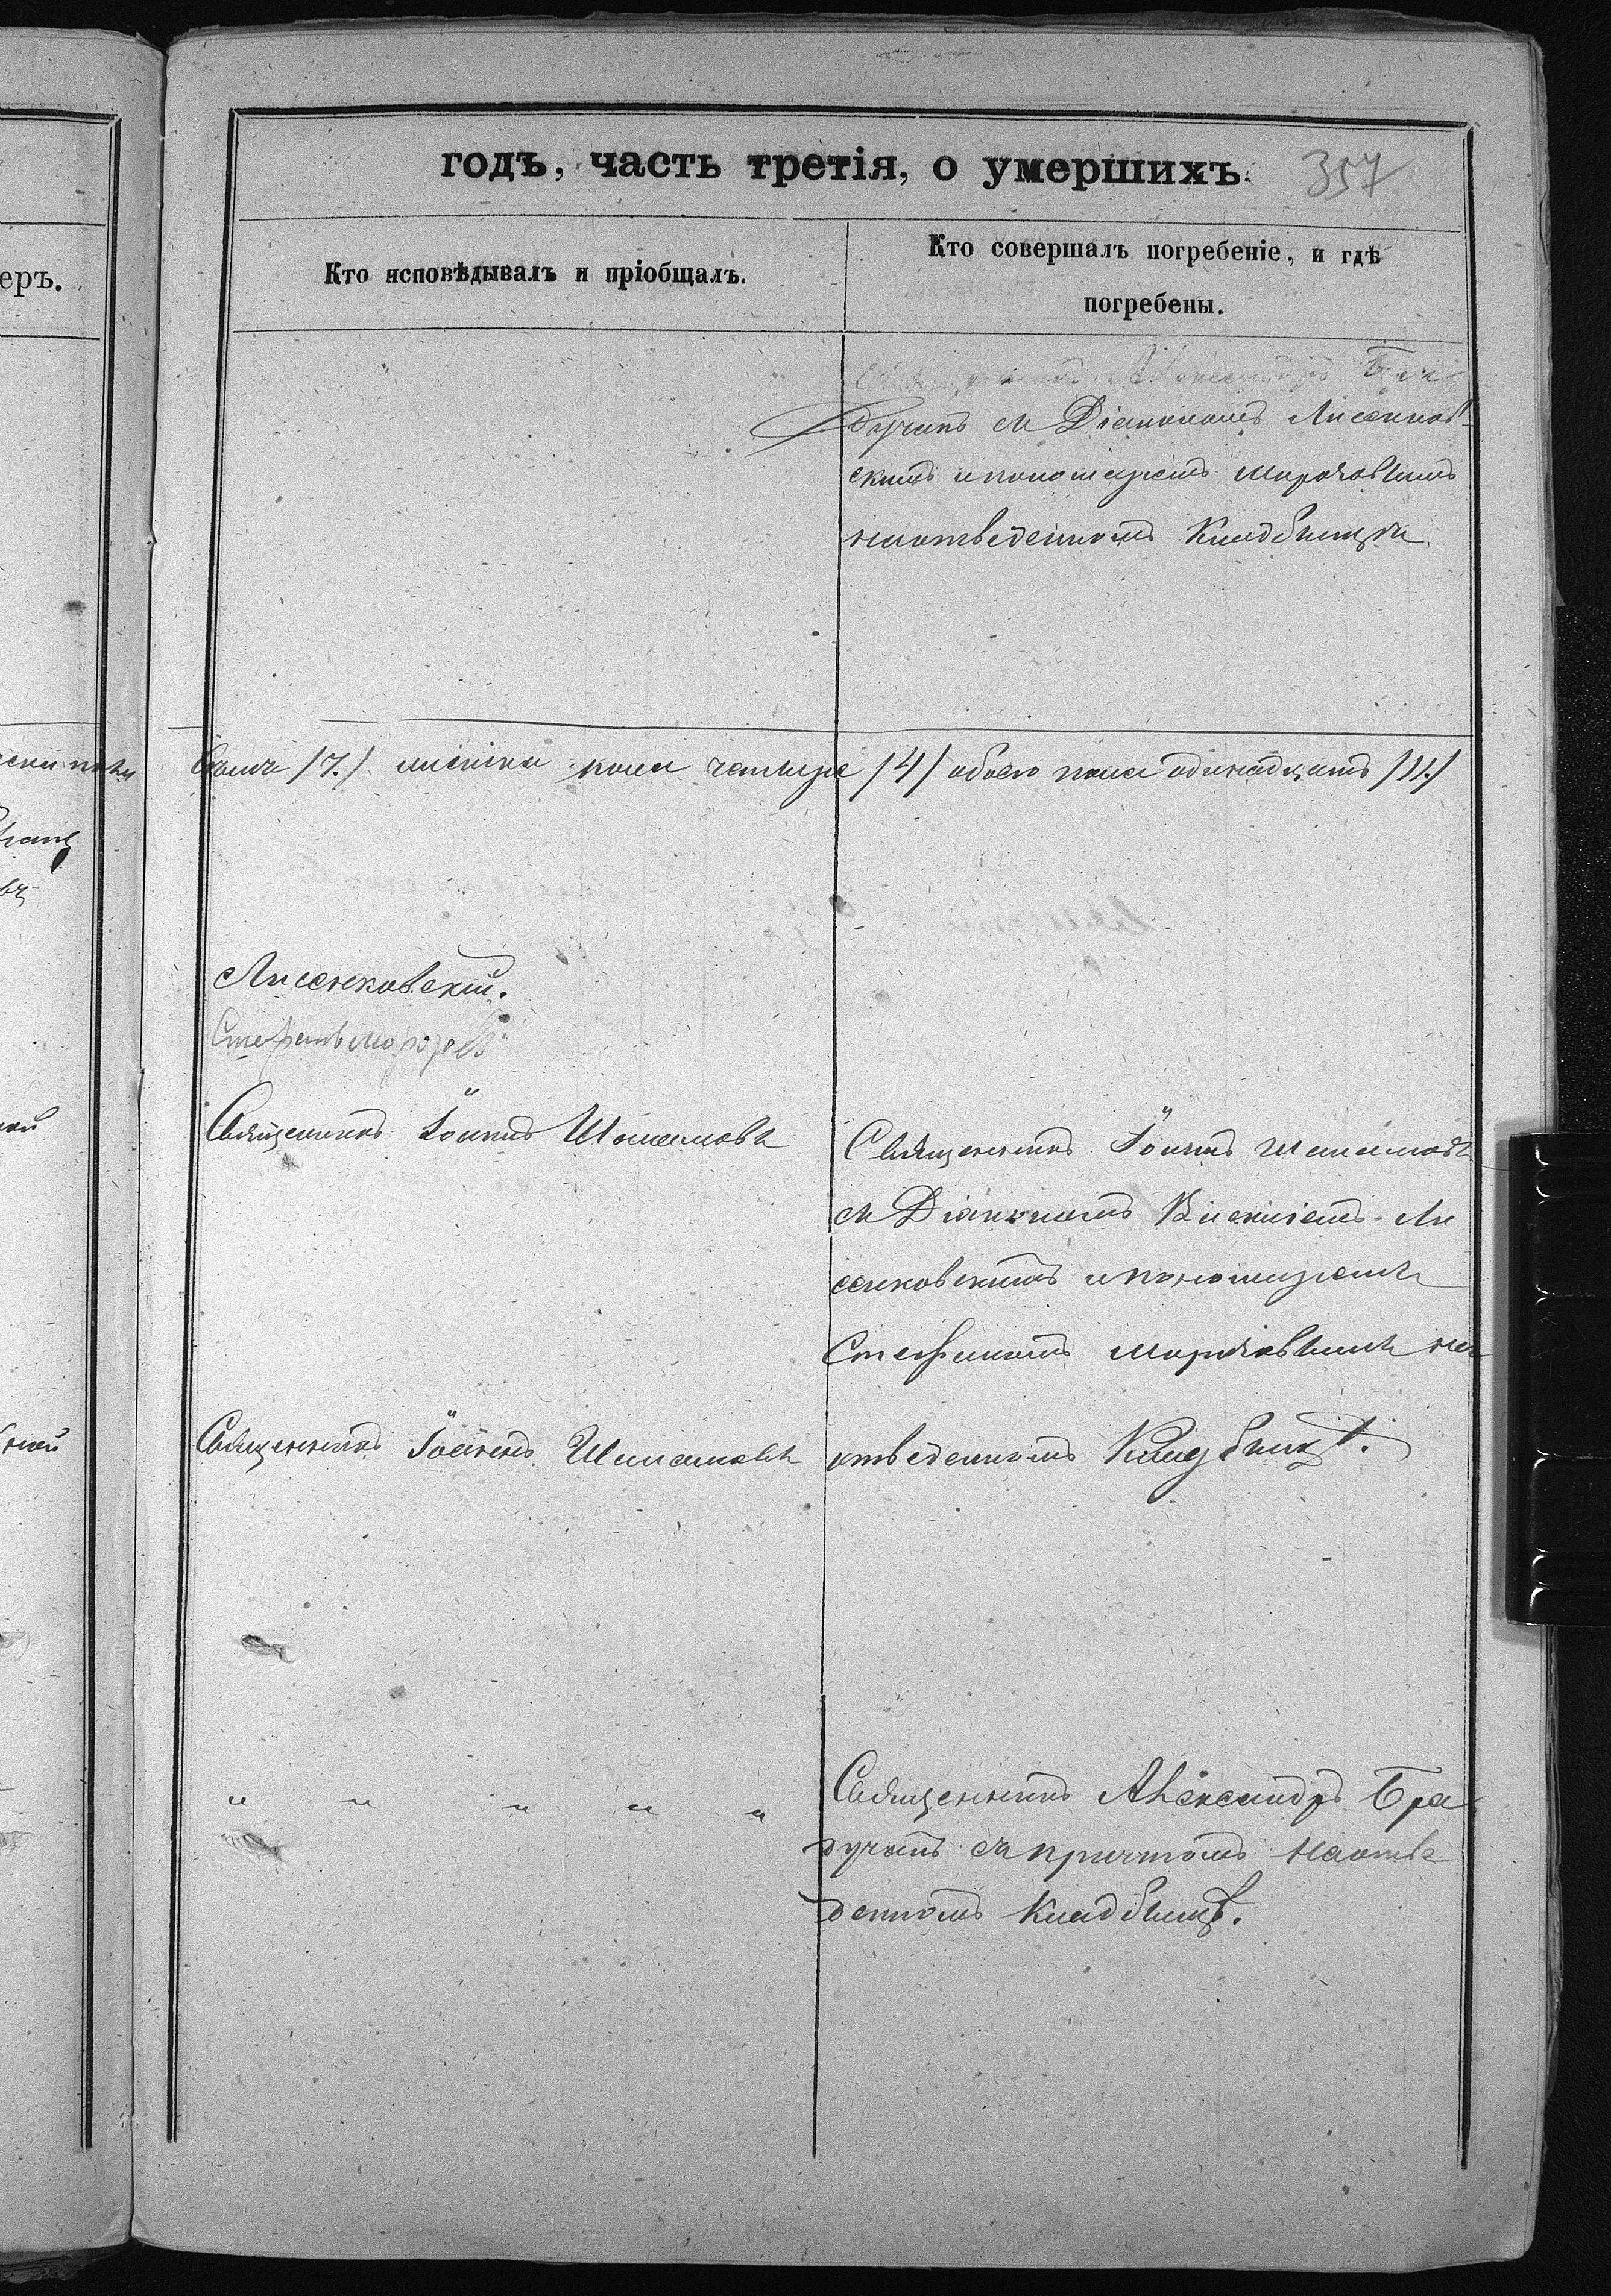 годъ, часть третія, о умершихъ. 357
еръ.
Кто исповѣдывалъ и пріобщалъ.
Кто совершалъ погребеніе, и гдѣ
погребены.
Александръ Бра
дучанъ съ Діакономъ Лисенков
скимъ и пономаремъ Морозовымъ
на отведенномъ Кладбищѣ
/7./ женска пола четыре /4/ обоего пола одинадцать /11./
Лисенковскій.
Стефанъ Морозовъ
Священникъ Іоаннъ Шамановъ
Священникъ Іоаннъ Шамановъ
съ Діакономъ Ли
сенковскимъ и пономаремъ
Стефаномъ Морозовымъ на
Священникъ Іоаннъ Шамановъ
отведенномъ Кладбищѣ.
" " " " "
Священникъ Александръ Бра
дучанъ съ причтомъ на отве
денномъ кладбищѣ.